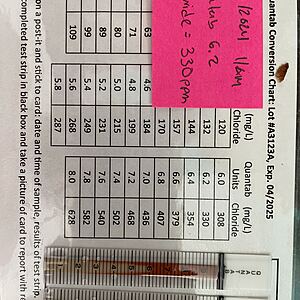 uantab Conversion Chart: Lot #A3123A, Exp. 04/2025
6.2
= 330ppm
(mg/L) Quantab (mg/L)
Chloride Units Chloride
120 6.0 308
132 6.2 330
144 6.4 354
157 6.6 379
170 6.8 407
63 4.6 184 7.0 436
71 4.8 199 7.2 468
80 5.0 215 7.4 502
89 5.2 231 7.6 540
99 5.4 249 7.8 582
109 5.6 268 8.0 628
5.8 287
on a post-it and stick to card: date and time of sample, results of test strip
completed test strip in black box and take a picture of card to report with re